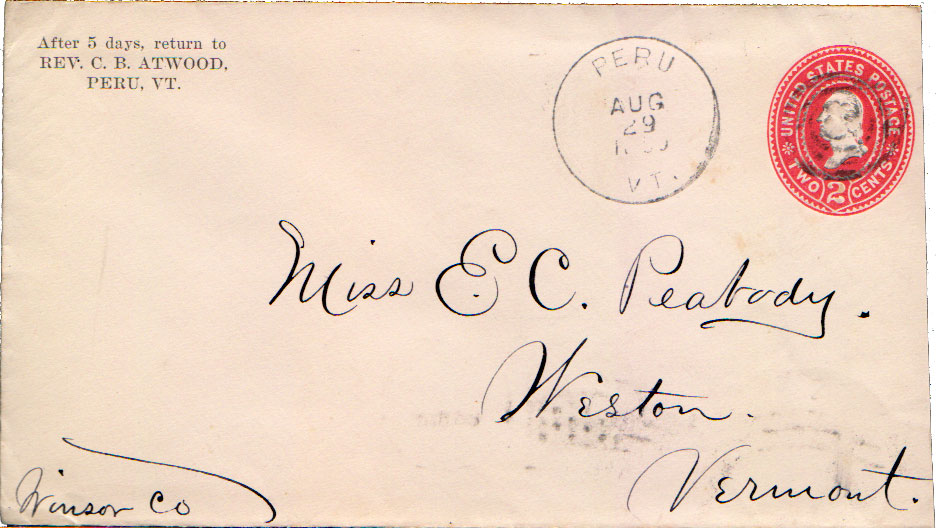 After 5 days, return to
REV. C. B. ATWOOD,
PERU, VT.
PERU
AUG
29
VT.
UNITED STATES POSTAGE
TWO 2 CENTS
Miss E C. Peabody.
Weston.
Vermont.
Winsor Co